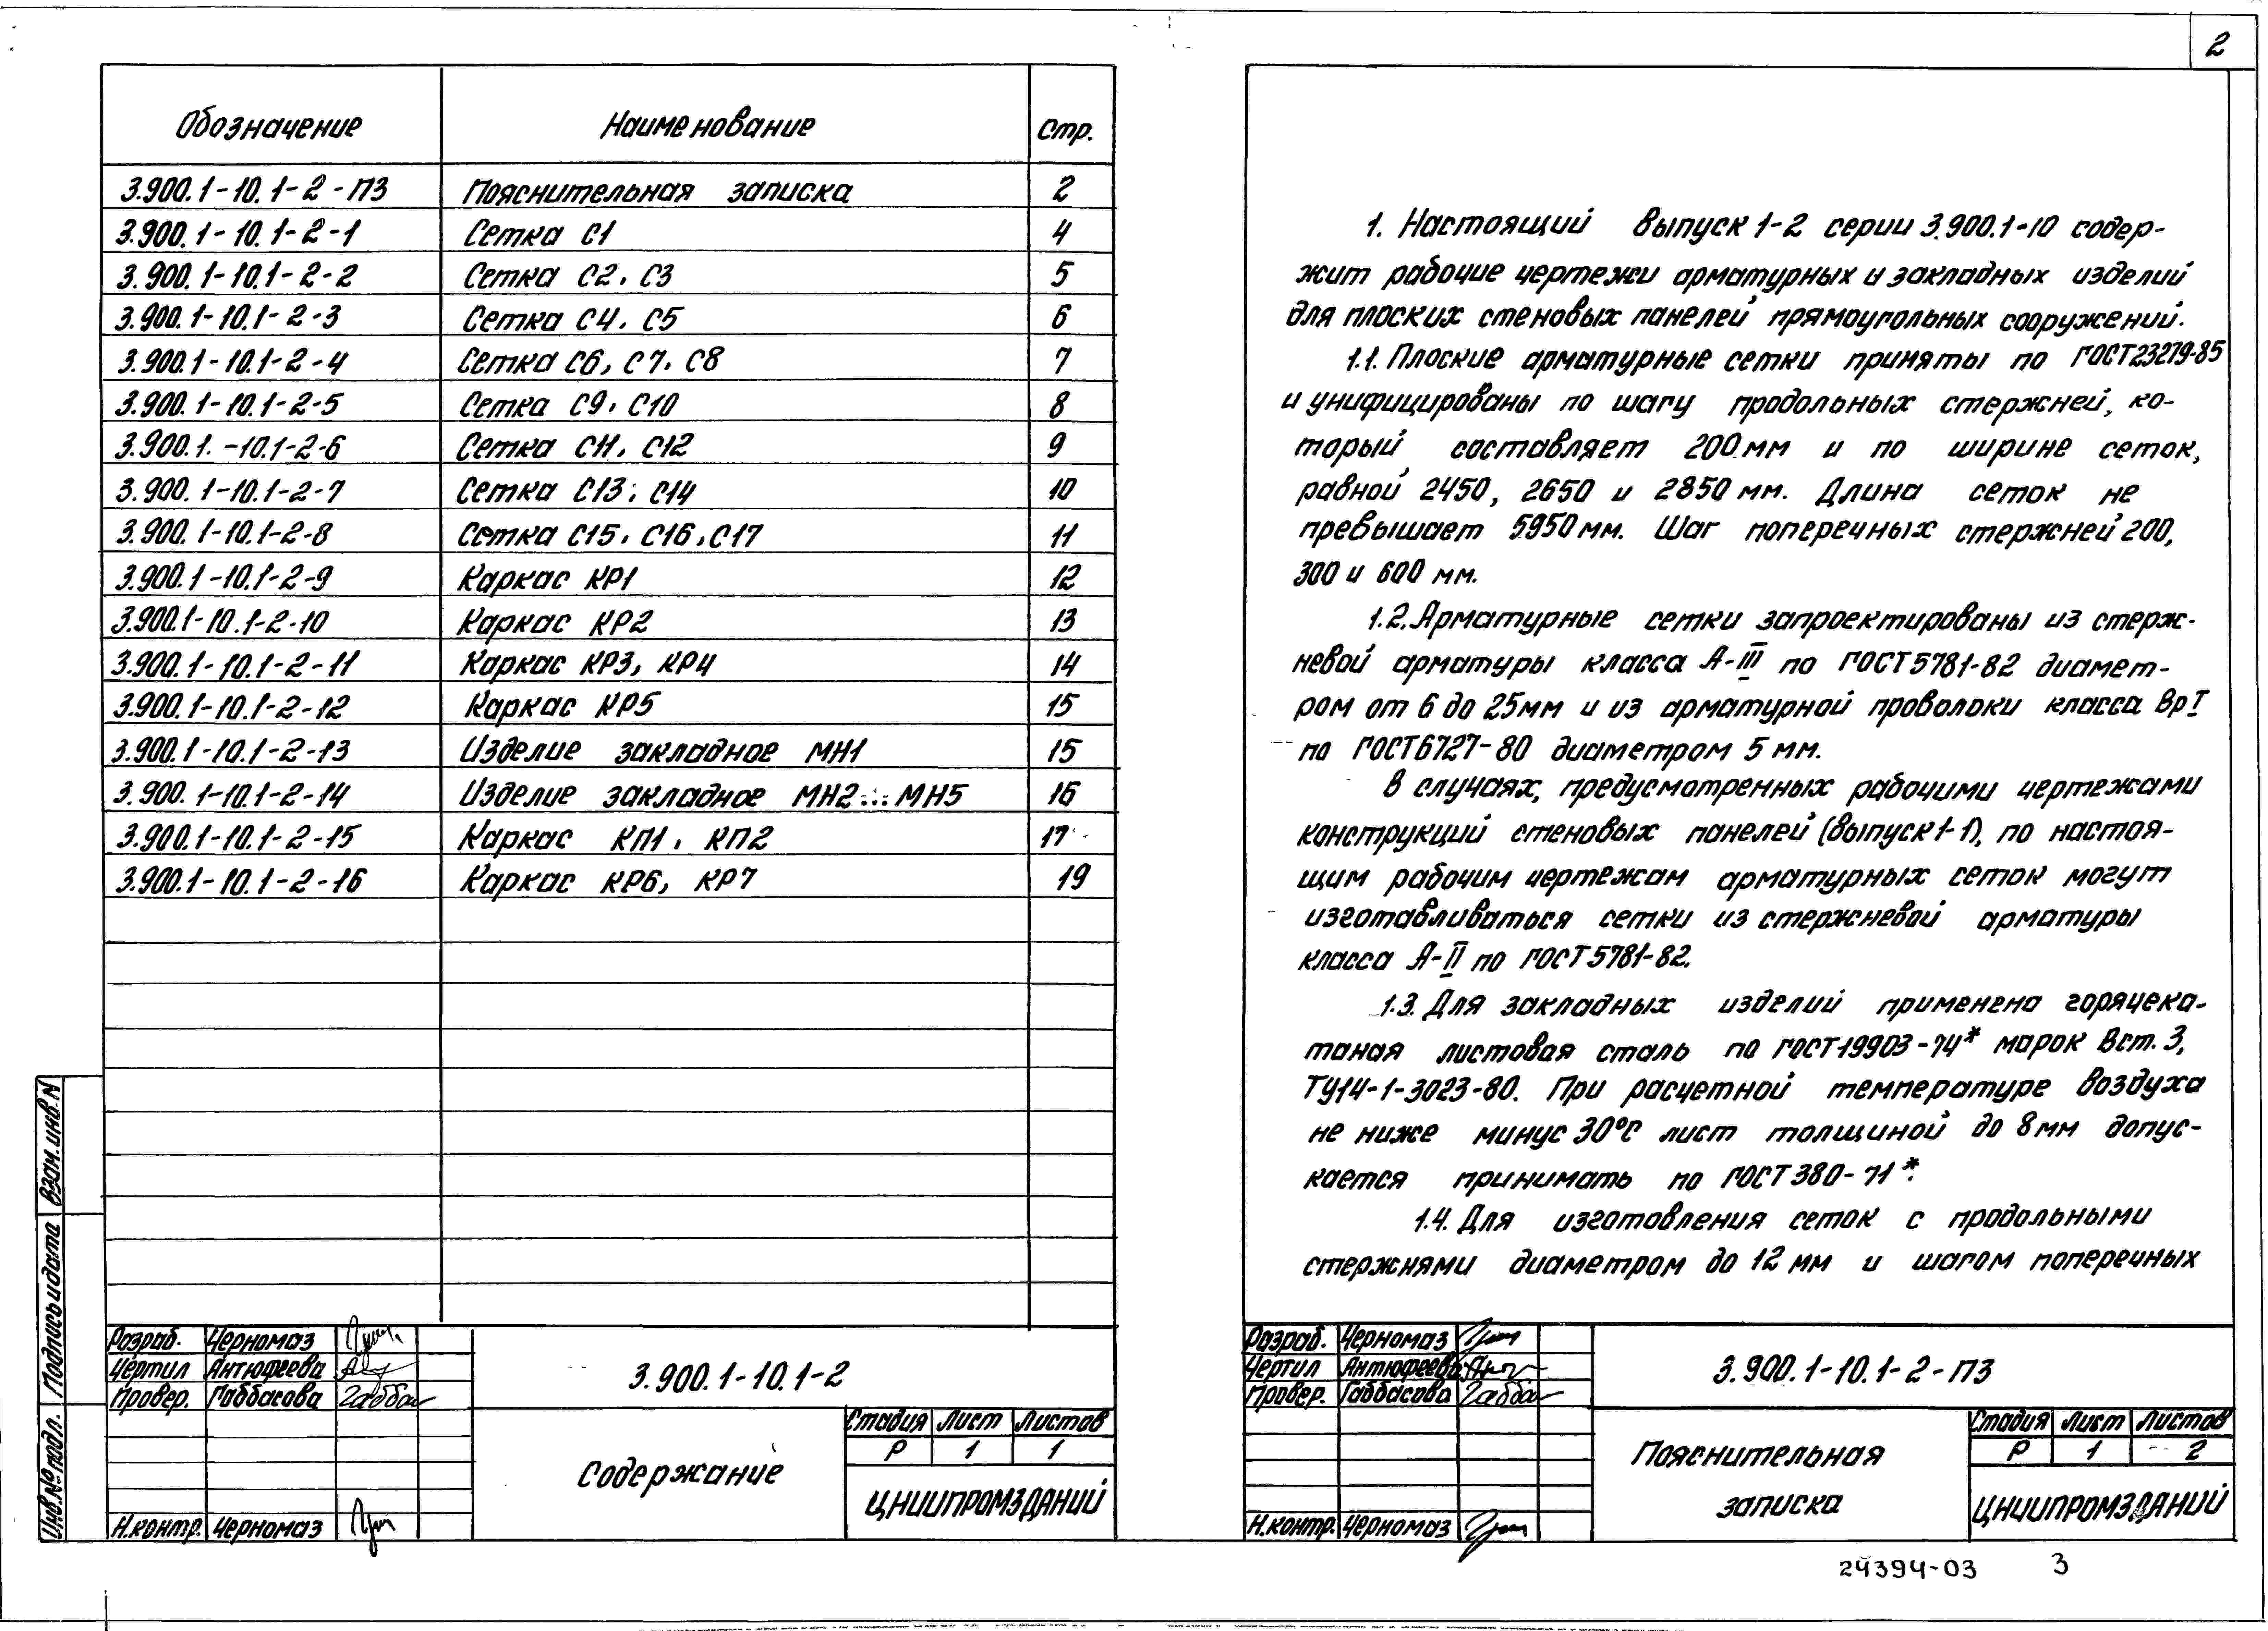 2
Обозначение Наименование Стр.
3.900.1-10.1-2-ПЗ Пояснительная записка 2
3.900.1-10.1-2-1 Сетка С1 4
3.900.1-10.1-2-2 Сетка С2, С3 5
3.900.1-10.1-2-3 Сетка С4, С5 6
3.900.1-10.1-2-4 Сетка С6, С7, С8 7
3.900.1-10.1-2-5 Сетка С9, С10 8
3.900.1.-10.1-2-6 Сетка С11, С12 9
3.900.1-10.1-2-7 Сетка С13, С14 10
3.900.1-10.1-2-8 Сетка С15, С16, С17 11
3.900.1-10.1-2-9 Каркас КР1 12
3.900.1-10.1-2-10 Каркас КР2 13
3.900.1-10.1-2-11 Каркас КР3, КР4 14
3.900.1-10.1-2-12 Каркас КР5 15
3.900.1-10.1-2-13 Изделие закладное МН1 15
3.900.1-10.1-2-14 Изделие закладное МН2...МН5 16
3.900.1-10.1-2-15 Каркас КП1, КП2 17
3.900.1-10.1-2-16 Каркас КР6, КР7 19
Инв.№ подл. Подпись и дата Взам. инв. N
Разраб. Черномаз
Чертил Антюфеева
Провер. Габбасова
Н.контр. Черномаз
3.900.1-10.1-2
Содержание
Стадия Лист Листов
Р 1 1
ЦНИИПРОМЗДАНИЙ
1. Настоящий выпуск 1-2 серии 3.900.1-10 содер-
жит рабочие чертежи арматурных и закладных изделий
для плоских стеновых панелей прямоугольных сооружений.
1.1. Плоские арматурные сетки приняты по ГОСТ 23279-85
и унифицированы по шагу продольных стержней, ко-
торый составляет 200 мм и по ширине сеток,
равной 2450, 2650 и 2850 мм. Длина сеток не
превышает 5950 мм. Шаг поперечных стержней 200,
300 и 600 мм.
1.2. Арматурные сетки запроектированы из стерж-
невой арматуры класса А-III по ГОСТ 5781-82 диамет-
ром от 6 до 25 мм и из арматурной проволоки класса Вр I
по ГОСТ 6727-80 диаметром 5 мм.
В случаях, предусмотренных рабочими чертежами
конструкций стеновых панелей (выпуск 1-1), по настоя-
щим рабочим чертежам арматурных сеток могут
изготавливаться сетки из стержневой арматуры
класса А-II по ГОСТ 5781-82.
1.3. Для закладных изделий применена горячека-
таная листовая сталь по ГОСТ 19903-74* марок Вст. 3,
ТУ14-1-3023-80. При расчетной температуре воздуха
не ниже минус 30°С лист толщиной до 8 мм допус-
кается принимать по ГОСТ 380-71*.
1.4. Для изготовления сеток с продольными
стержнями диаметром до 12 мм и шагом поперечных
Разраб. Черномаз
Чертил Антюфеева
Провер. Габбасова
Н.контр. Черномаз
3.900.1-10.1-2-ПЗ
Пояснительная
записка
Стадия Лист Листов
Р 1 2
ЦНИИПРОМЗДАНИЙ
24394-03 3